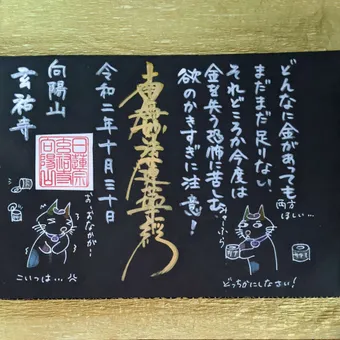 どんなに金があっても
まだまだ足りない、
それどころか今度は
金を失う恐怖に苦しむ。
欲のかきすぎに注意！
南無妙法蓮華経
令和二年十月三十日
向陽山
玄祐寺
日蓮宗
玄祐寺
向陽山
両方
ほしい…
どっちかにしなさい！
お、おなかが…
こいつは…